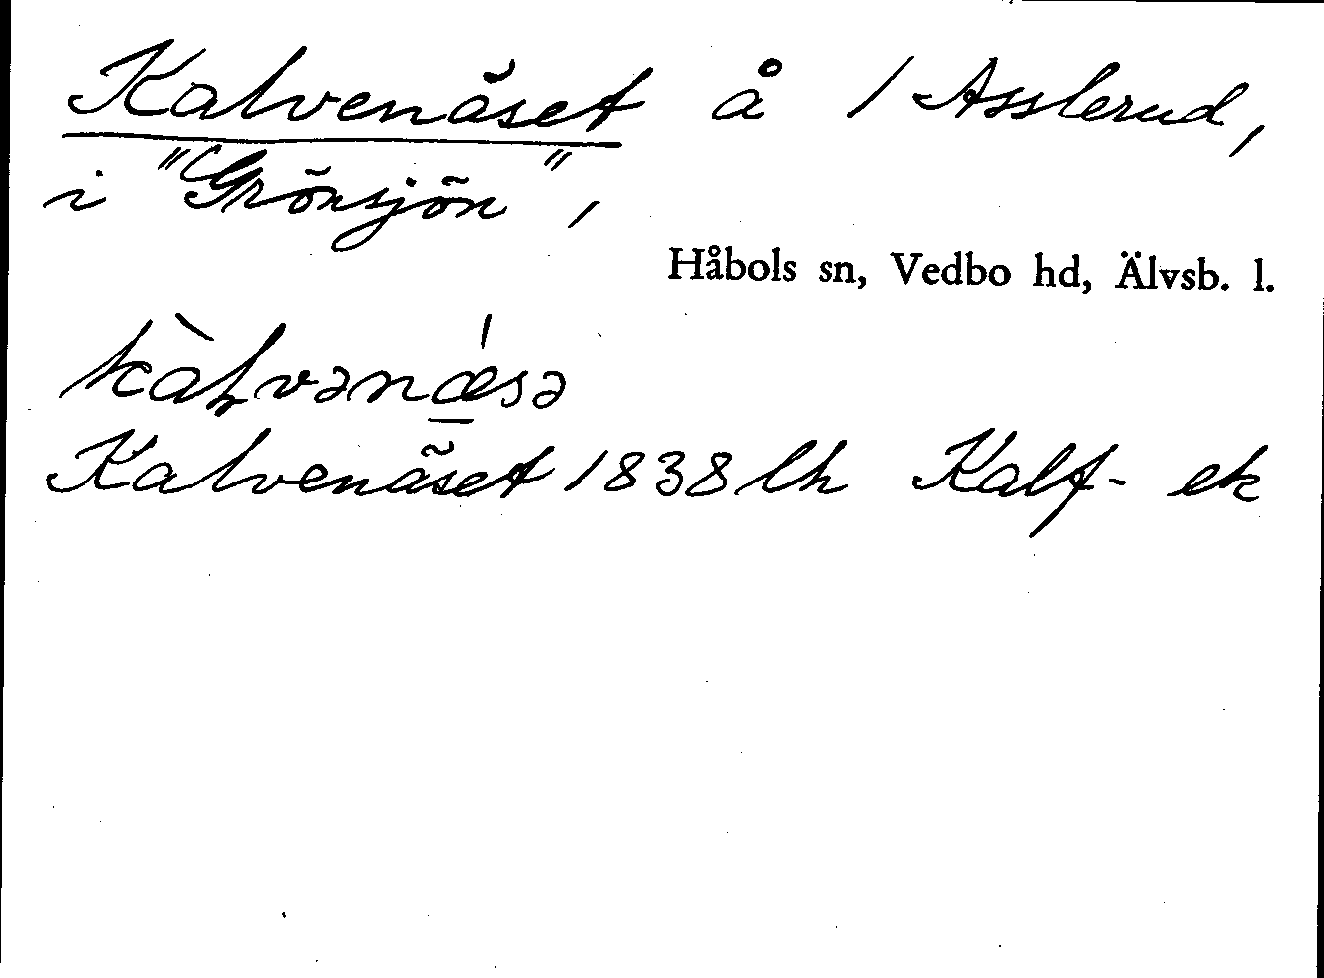 Kalvenäset å 1 Asslerud,
i "Grönsjön",
Håbols sn, Vedbo hd, Älvsb. l.
kàɫvənǽsə
Kalvenäset 1838 lh Kalf- ek